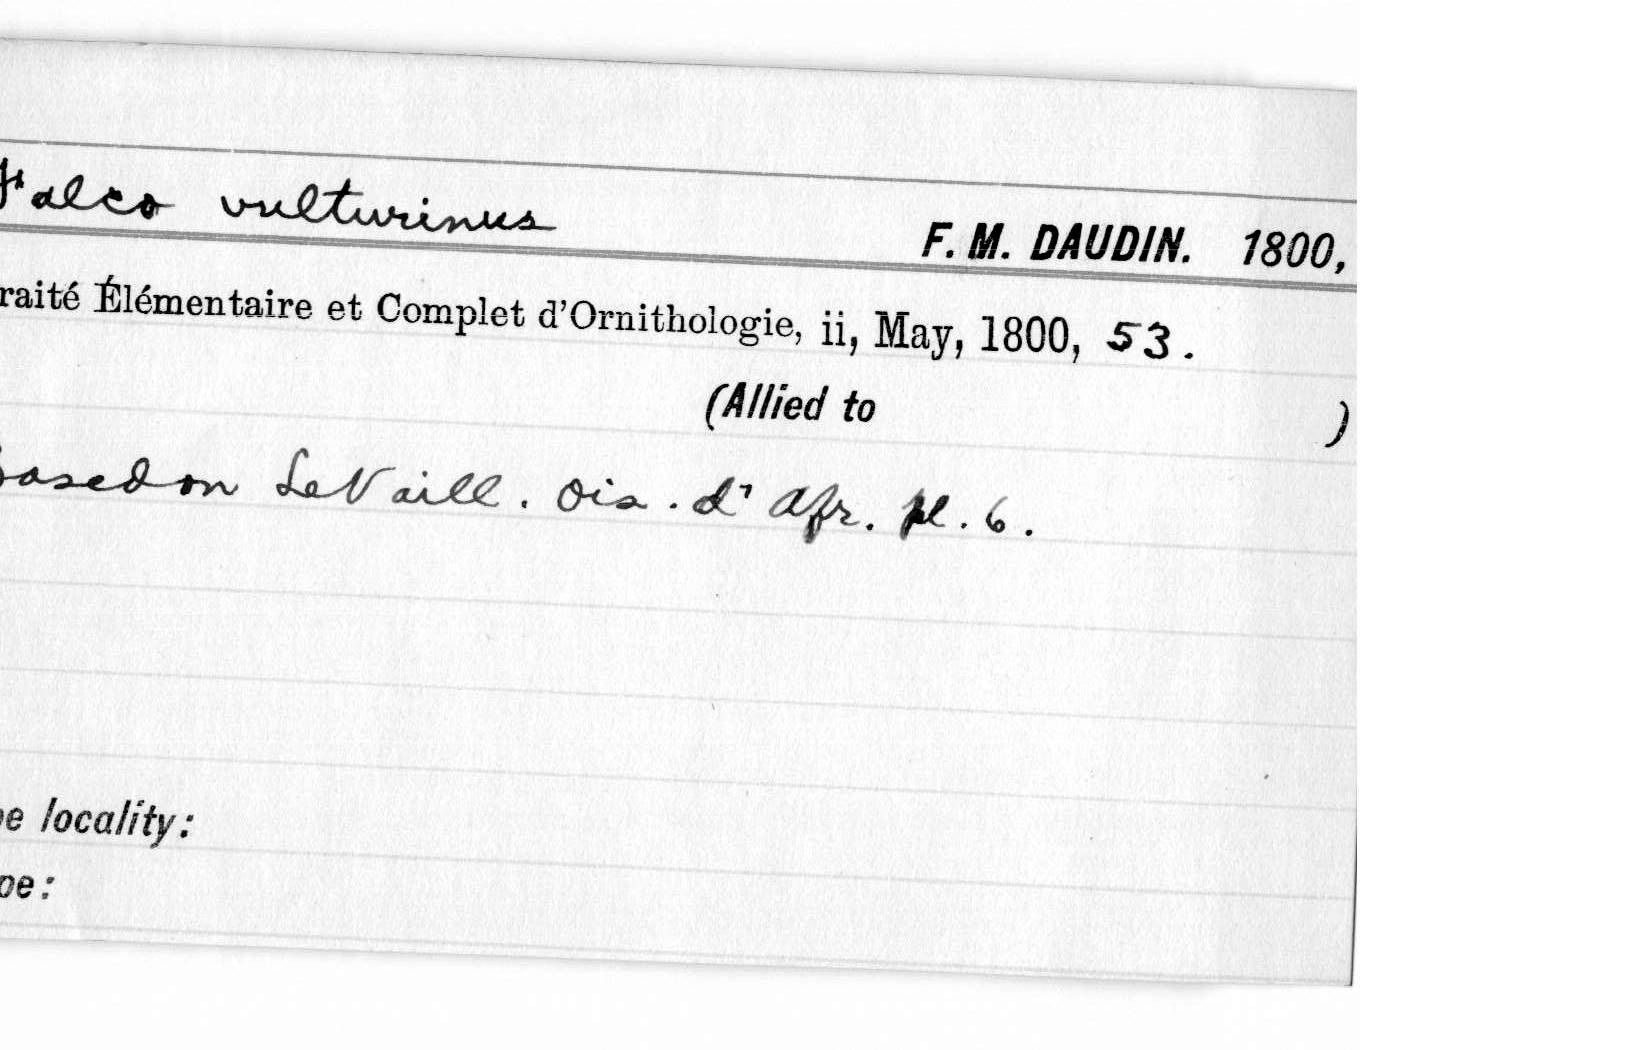 Falco vulturinus F. M. DAUDIN. 1800,
raité Élémentaire et Complet d'Ornithologie, ii, May, 1800, 53.
(Allied to )
Based on LeVaill. Ois. d'Afr. pl. 6.
pe locality:
pe: